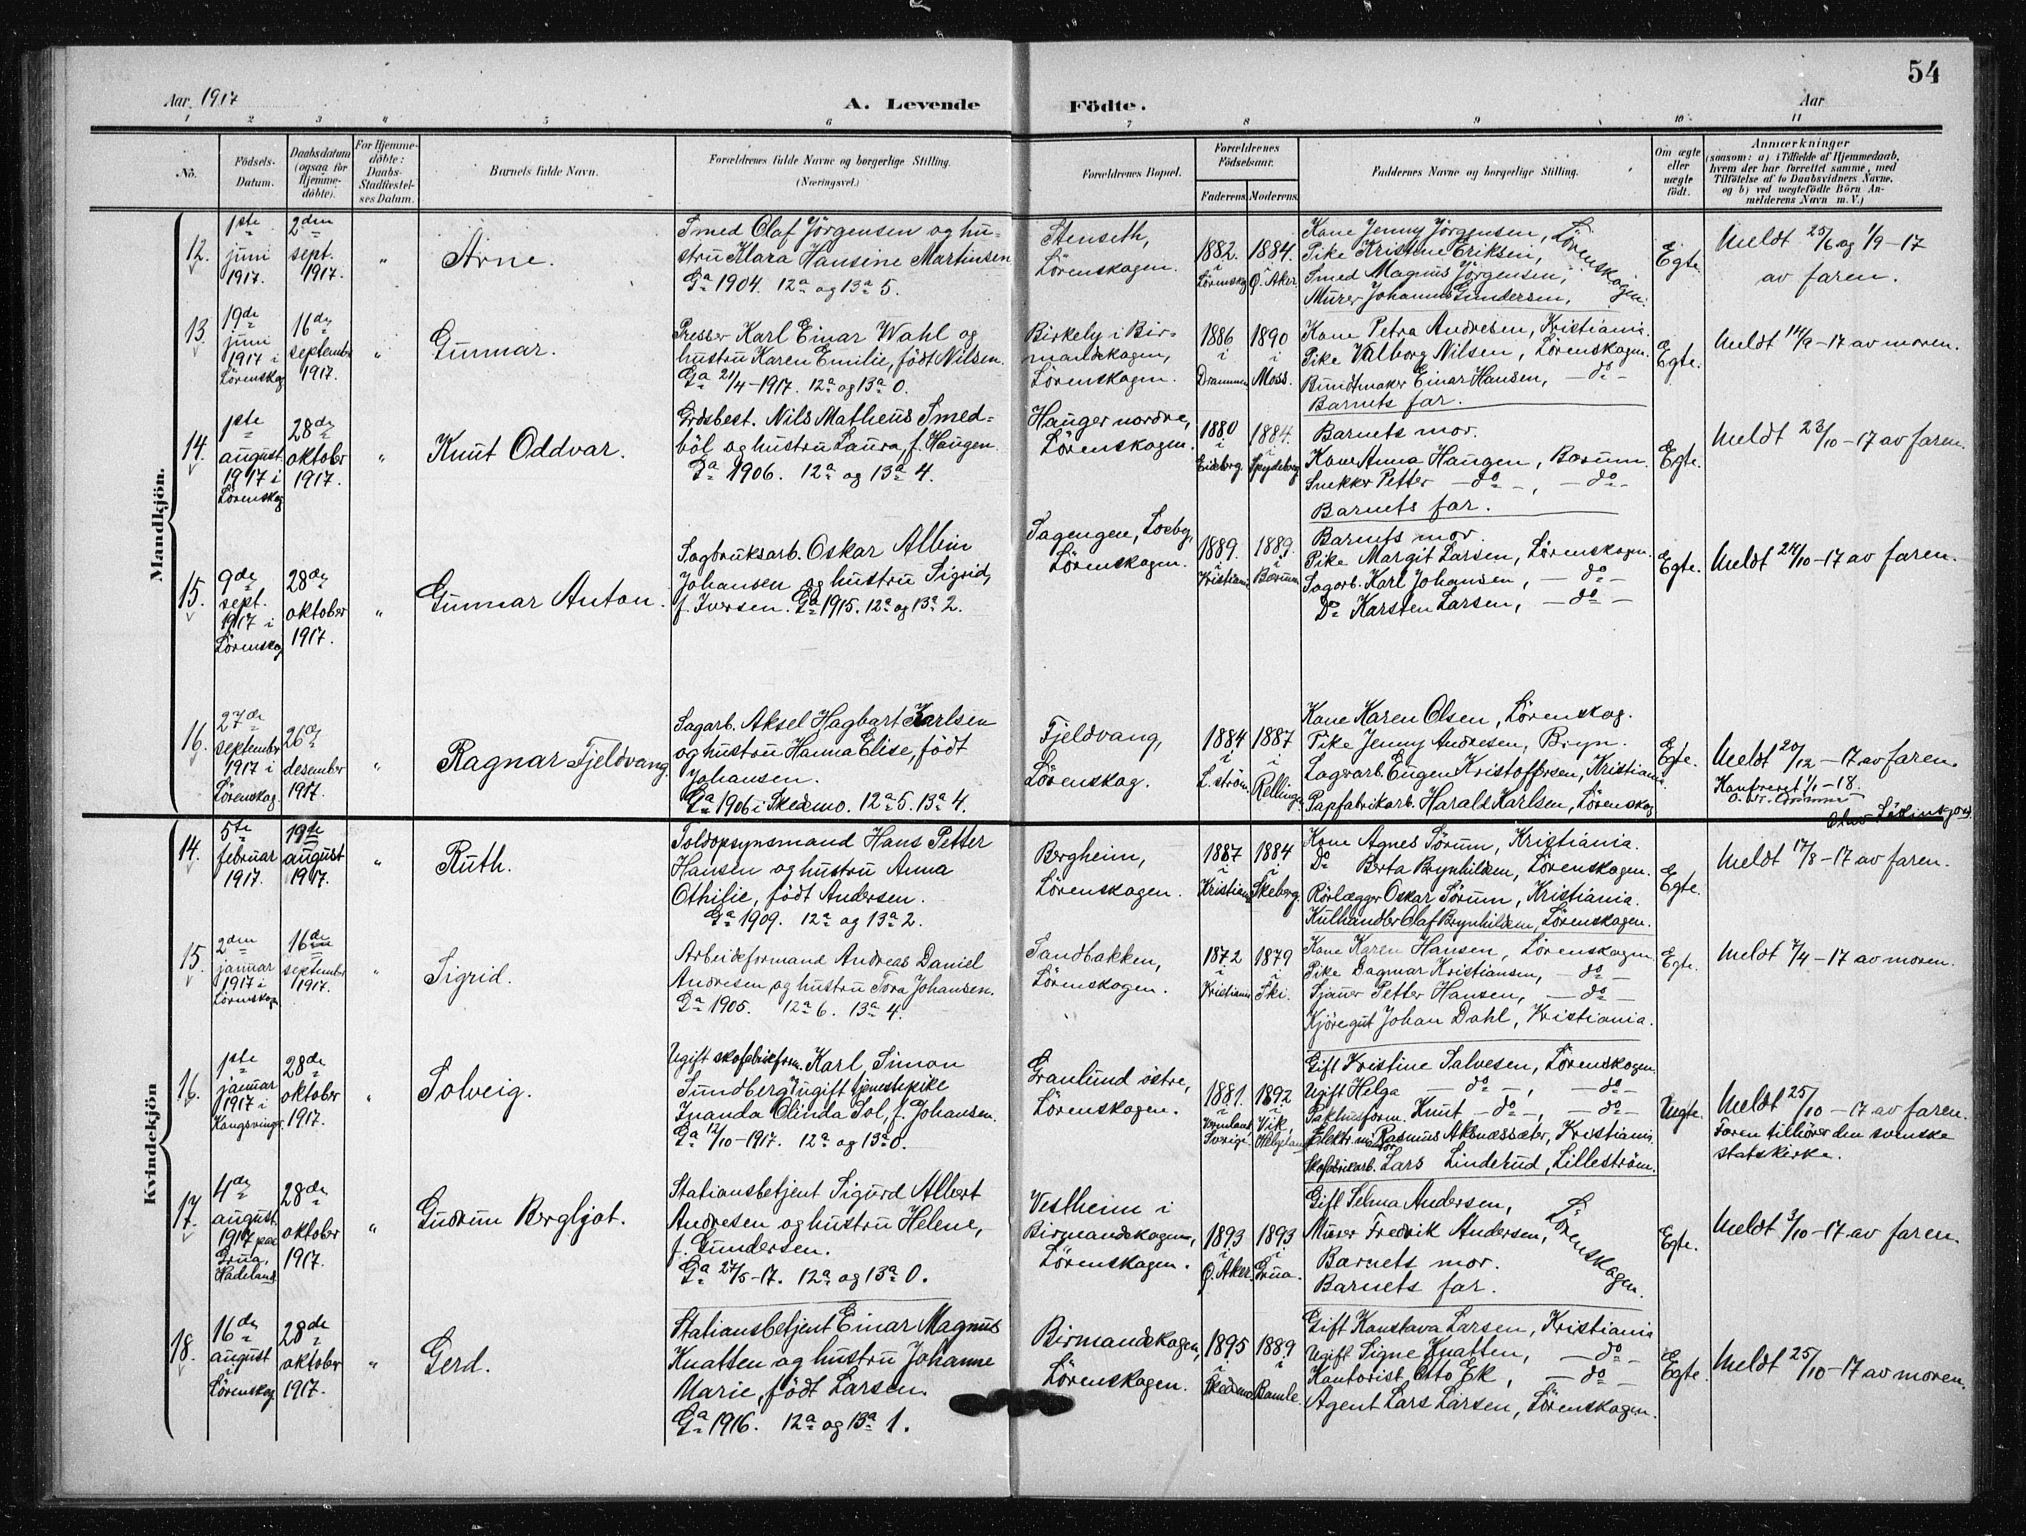 54
Aar 1917
A. Levende Födte.
Aar
1 2 3 4 5 6 7 8 9 10 11
No.
Födsels-Datum.
Daabsdatum (ogsaa for Hjemmedöbte).
For Hjemmedöbte: Daabs-Stadfæstelses Datum.
Barnets fulde Navn.
Forældrenes fulde Navne og borgerlige Stilling.
(Næringsvei.)
Forældrenes Bopæl.
Forældrenes Födselsaar.
Faderens. Moderens.
Faddernes Navne og borgerlige Stilling.
Om ægte eller uægte födt.
Anmærkninger
(saasom: a) i Tilfælde af Hjemmedaab,
hvem der har forrettet samme, med
Tilföielse af to Daabsvidners Navne,
og b) ved uægtefödte Börn Anmelderens Navn m. V.)
Mandkjön.
12.
1ste juni 1917.
2den sept. 1917.
"
Arne.
Smed Olaf Jörgensen og hu-
stru Klara Hansine Martinsen
Ga 1904. 12a og 13a 5.
Stenseth,
Lörenskogen.
1882. i Lörenskog
1884. i Ö. Aker.
Kone Jenny Jörgensen,
Pike Kristine Eriksen,
Smed Magnus Jörgensen,
Murer Johannes Gundersen,
Lörenskogen.
Egte.
Meldt 25/6 og 1/9-17
av faren.
13.
19de juni 1917 i Lörenskog
16de september 1917.
"
Gunnar.
Presser Karl Einar Wahl og
hustru Karen Emilie, född Nilsen.
Ga 21/4-1917. 12a og 13a 0.
Birkely i Bir-
mandskogen,
Lörenskogen.
1886 i Drammen
1890 i Moss.
Kone Petra Andresen, Kristiania.
Pike Valborg Nilsen, Lörenskogen.
Bundtmaker Einar Hansen, - do -
Barnets far.
Egte.
Meldt 14/9-17 av moren.
14.
1ste august 1917 i Lörenskog
28de oktober 1917.
"
Knut Oddvar.
Grdsbest. Nils Matheus Smed-
böl og hustru Laura, f. Haugen.
Ga 1906. 12a og 13a 4.
Hauger nordre,
Lörenskogen.
1880 i Eidsberg.
1884. i Spydeberg
Barnets mor.
Kone Anna Haugen, Bærum.
Snekker Petter - do -, - do -
Barnets far.
Egte.
Meldt 23/10-17 av faren.
15.
9de sept. 1917 i Lörenskog
28de oktober 1917.
"
Gunnar Anton.
Sagbruksarb. Oskar Albin
Johansen og hustru Sigrid,
f. Iversen. Ga 1915. 12a og 13a 2.
Sagengen, Losby,
Lörenskogen.
1889. i Kristiania
1889. i Bærum
Barnets mor.
Pike Margit Larsen, Lörenskogen.
Sagarb. Karl Johansen, - do -
Do Karsten Larsen, - do -
Egte.
Meldt 24/10-17 av faren.
16.
27de september 1917 i Lörenskog.
26de desember 1917.
"
Ragnar Fjeldvang.
Sagarb. Aksel Hagbart Karlsen
og hustru Hanna Elise, född
Johansen.
Ga 1906 i Skedsmo. 12a 5. 13a 4.
Fjeldvang,
Lörenskog.
1884 i L.ström.
1887 i Rellinge
Kone Karen Olsen, Lörenskog.
Pike Jenny Andresen, Bryn.
Lagerarb. Eugen Kristoffersen, Kristiania
Papfabrikarb. Harald Karlsen, Lörenskog
Egte.
Meldt 20/12-17 av faren.
Konfereret 1/1-18.
Kvindekjön
14.
5te februar 1917.
19de august 1917.
"
Ruth.
Toldopsynsmand Hans Petter
Hansen og hustru Anna
Othilie, född Andersen.
Ga 1909. 12a og 13a 2.
Bergheim,
Lörenskogen.
1887 i Kristiania
1884 i Skeberg.
Kone Agnes Sörum, Kristiania.
Do Berta Brynhildsen, Lörenskogen.
Rörlægger Oskar Sörum, Kristiania.
Kulhandler Olaf Brynhildsen, Lörenskogen.
Egte.
Meldt 17/8-17 av faren.
15.
2den januar 1917 i Lörenskog
16de september 1917.
"
Sigrid.
Arbeidsformand Andreas Daniel
Andresen og hustru Tora Johansen.
Ga 1905. 12a 6. 13a 4.
Sandbakken,
Lörenskogen.
1872 i Kristiania
1879 i Ski.
Kone Karen Hansen, Lörenskogen.
Pike Dagmar Kristiansen, - do -
Sjauer Petter Hansen, - do -
Kjöregut Johan Dahl, Kristiania.
Egte.
Meldt 7/4-17 av moren.
16.
1ste januar 1917 i Kongsvinger
28de oktober 1917.
"
Solveig.
Ugift skofabrikform. Karl Simon
Sundberg, ugift tjenestepike
Inanda Olinda Sol, f. Johansen.
Ga 12/10-1917. 12a og 13a 0.
Granlund östre,
Lörenskogen.
1881. i Vermland Sverige
1892 i Vik, Helgeland
Gift Kristine Salvesen, Lörenskogen.
Ugift Helga - do -, - do -
Pakhusform. Knut - do -, - do -
Elektr. mntr. Rasmus Aknæssæter, Kristiania
Skofabrikarb. Lars Linderud, Lilleström.
Uegte.
Meldt 25/10-17 av faren.
Faren tilhörer den svenske
statskirke.
17.
4de august 1917 paa Grua, Hadeland
28de oktober 1917.
"
Gudrun Bergljot.
Stationsbetjent Sigurd Albert
Andresen og hustru Helene,
f. Gundersen.
Ga 27/5-17. 12a og 13a 0.
Vestheim i
Birmandskogen,
Lörenskogen.
1893 i Ö. Aker.
1893 i Grua.
Gift Selma Andersen,
Murer Fredrik Andersen,
Barnets mor.
Barnets far.
Lörenskogen.
Egte.
Meldt 3/10-17 av faren.
18.
16de august i Lörenskog
28de oktober 1917.
"
Gerd.
Stationsbetjent Einar Magnus
Knatten og hustru Johanne
Marie, född Larsen.
Ga 1916. 12a og 13a 1.
Birmandskogen,
Lörenskogen.
1895 i Skedsmo
1889 i Bamle.
Gift Konstava Larsen, Kristiania
Ugift Signe Knatten, - do -
Kontorist Otto Ek, - do -
Agent Lars Larsen, Lörenskogen.
Egte.
Meldt 25/10-17 av moren.